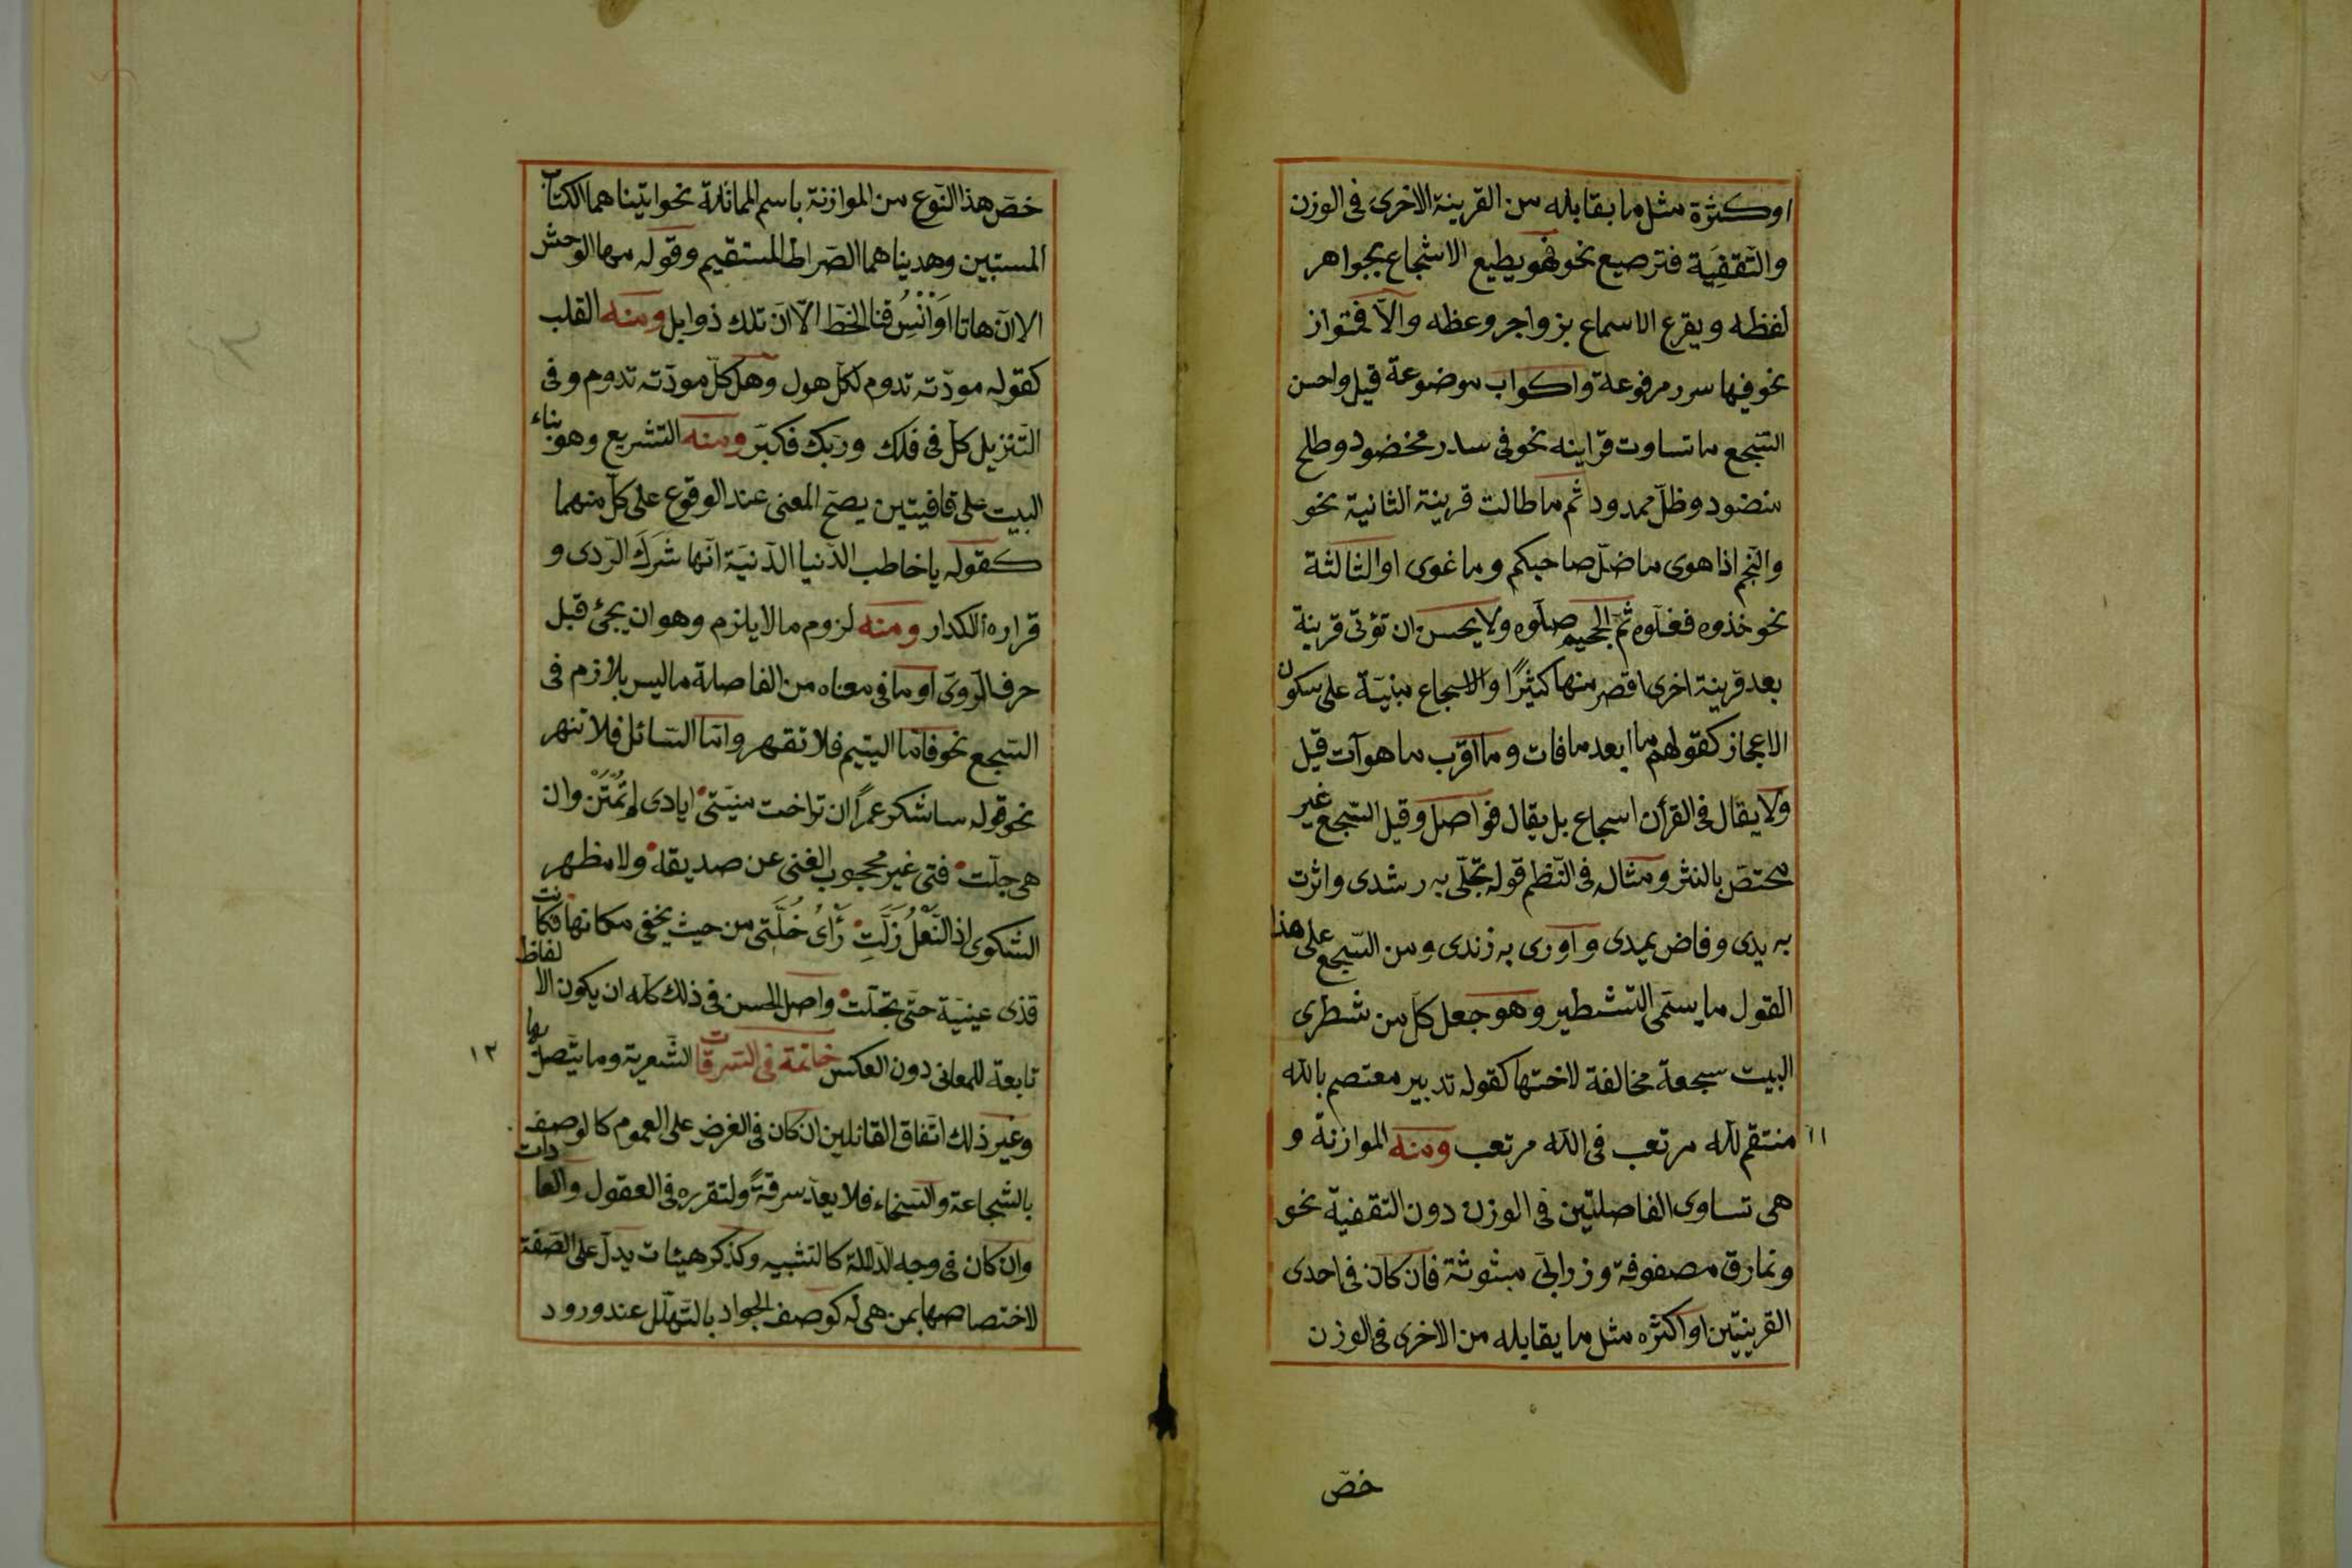 اوكثرة مثل ما يقابله من القرينة الاخرى فى الوزن
والتّقفِيَة فترصيع نحو فهو يطبع الاشجاع بجواهر
لفظه ويقرع الاسماع بزواجر وعظه والّا فمتواز
نحو فيها سرر مرفوعة واكواب موضوعة قيل واحسن
السّجع ما تساوت قراينه نحو فى سدر مخضود وطلح
منضود وظلّ ممدود ثم ما طالت قرينة الثانية نحو
والنّجم اذا هوى ما ضلّ صاحبكم وما غوى او الثالثة
نحو خذوه فغلّوه ثمّ الجحيم صلّوه ولا يحسن ان تؤتى قرينة
بعد قرينة اخرى اقصر منها كثيرًا والاسجاع مبنيّة على سكون
الاعجاز كقولهم ما ابعد ما فات وما اقرب ما هو آت قيل
ولا يقال فى القرأن اسجاع بل يقال فواصل وقيل السّجع غير
مختصّ بالنثر ومثاله فى النّظم قوله تجلّى به رشدى واثرت
به يدى وفاض به ثمدى واورى به زندى ومن السّجع على هذا
القول ما يسمّى التشطير وهو جعل كلّ من شطرى
البيت سجعة مخالفة لاختها كقوله تدبير معتصم بالله
منتقم لله مرتعب فى الله مرتعب ومنه الموازنة و
١١
هى تساوى الفاصلتين فى الوزن دون التقفية نحو
ونمارق مصفوفة وزرابىّ مبثوثة فان كان فى احدى
القرينتين او اكثره مثل ما يقابله من الاخرى فى الوزن
خصّ
خصّ هذا النّوع من الموازنة باسم المماثلة نحو اتيناهما الكتاب
المستبين وهديناهما الصّراط المستقيم وقوله مها الوحش
الا انّ هاتا اوانس قنا الخطّ الّا انّ تلك ذوابل ومنه القلب
كقوله مودّته تدوم لكل هول وهل كلّ مودّته تدوم وفى
التّنزيل كلّ فى فلك وربّك فكبّر ومنه التشريع وهو بناء
البيت على قافيتين يصحّ المعنى عند الوقوع على كلّ منهما
كقوله يا خاطب الدّنيا الدّنيّة انّها شَرَكَ الرّدى و
قراره الاكدار ومنه لزوم ما لا يلزم وهو ان يجئ قبل
حرف الرّوىّ او ما فى معناه من الفاصلة ما ليس بلازم فى
السّجع نحو فامّا اليتيم فلا تقهر وامّا السّائل فلا تنهر
نحو قوله ساشكر عمرًا ان تراخت منيّتى ايادى لم تُمْنَنْ وان
هى جلّت فتى غير محجوب الغنى عن صديقه ولا مظهر
الشكوى اذ النّعلُ زَلّتِ رَأى خُلَّتى من حيث يخفى مكانها فكانت
قذى عينيّة حتّى تجلّت واصل الحسن فى ذلك كلّه ان يكون الالفاظ
تابعة للمعانى دون العكس خاتمة فى السّرقات الشّعرية وما يتّصل بها
١٢
وغير ذلك اتّفاق القائلين ان كان فى الغرض على العموم كالوصف
بالشّجاعة والسّخاء فلا يعدّ سرقةً ولتقرره فى العقول والعادات
وان كان فى وجه الدّلالة كالتشبيه وكذكر هيئات يدلّ على الصّفة
لاختصاصها بمن هى له كوصف الجواد بالتّهلّل عند ورود